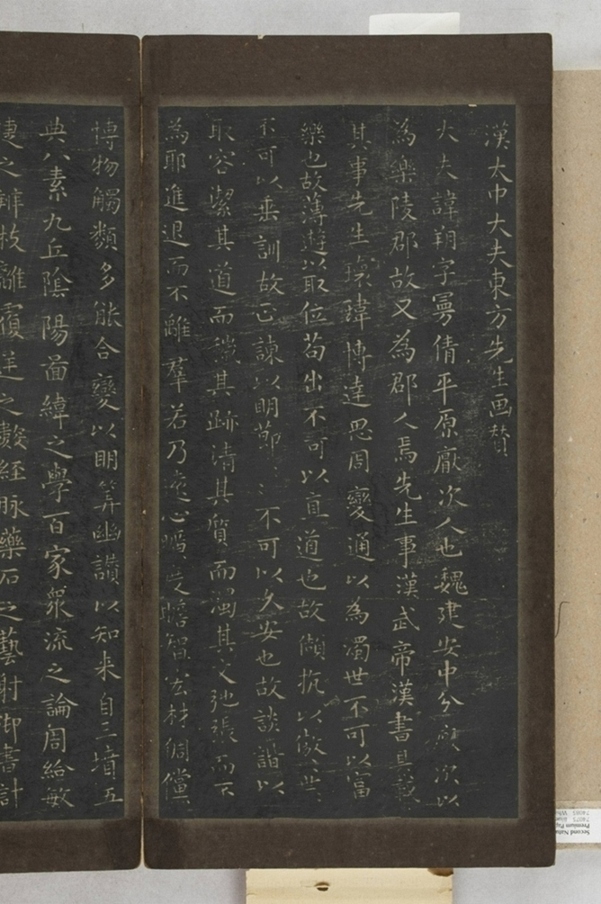 漢太中大夫東方先生画賛
大夫諱朔字曼倩平原厭次人也魏建安中分厭次以
為樂陵郡故又為郡人焉先生事漢武帝漢書具載
其事先生瓌瑋博達思周變通以為濁世不可以富
樂也故薄遊以取位苟出不可以直道也故傾抗以傲世
不可以垂訓故正諫以明節〻不可以久安也故談諧以
取容潔其道而穢其跡清其質而濁其文弛張而不
為耶進退而不離羣若乃遠心曠度贍智宏材倜儻
博物觸類多能合變以明筭幽讃以知来自三墳五
典八素九丘陰陽啚緯之學百家衆流之論周給敏
之辨枝離覆逆之數經脉藥石之藝射御書計